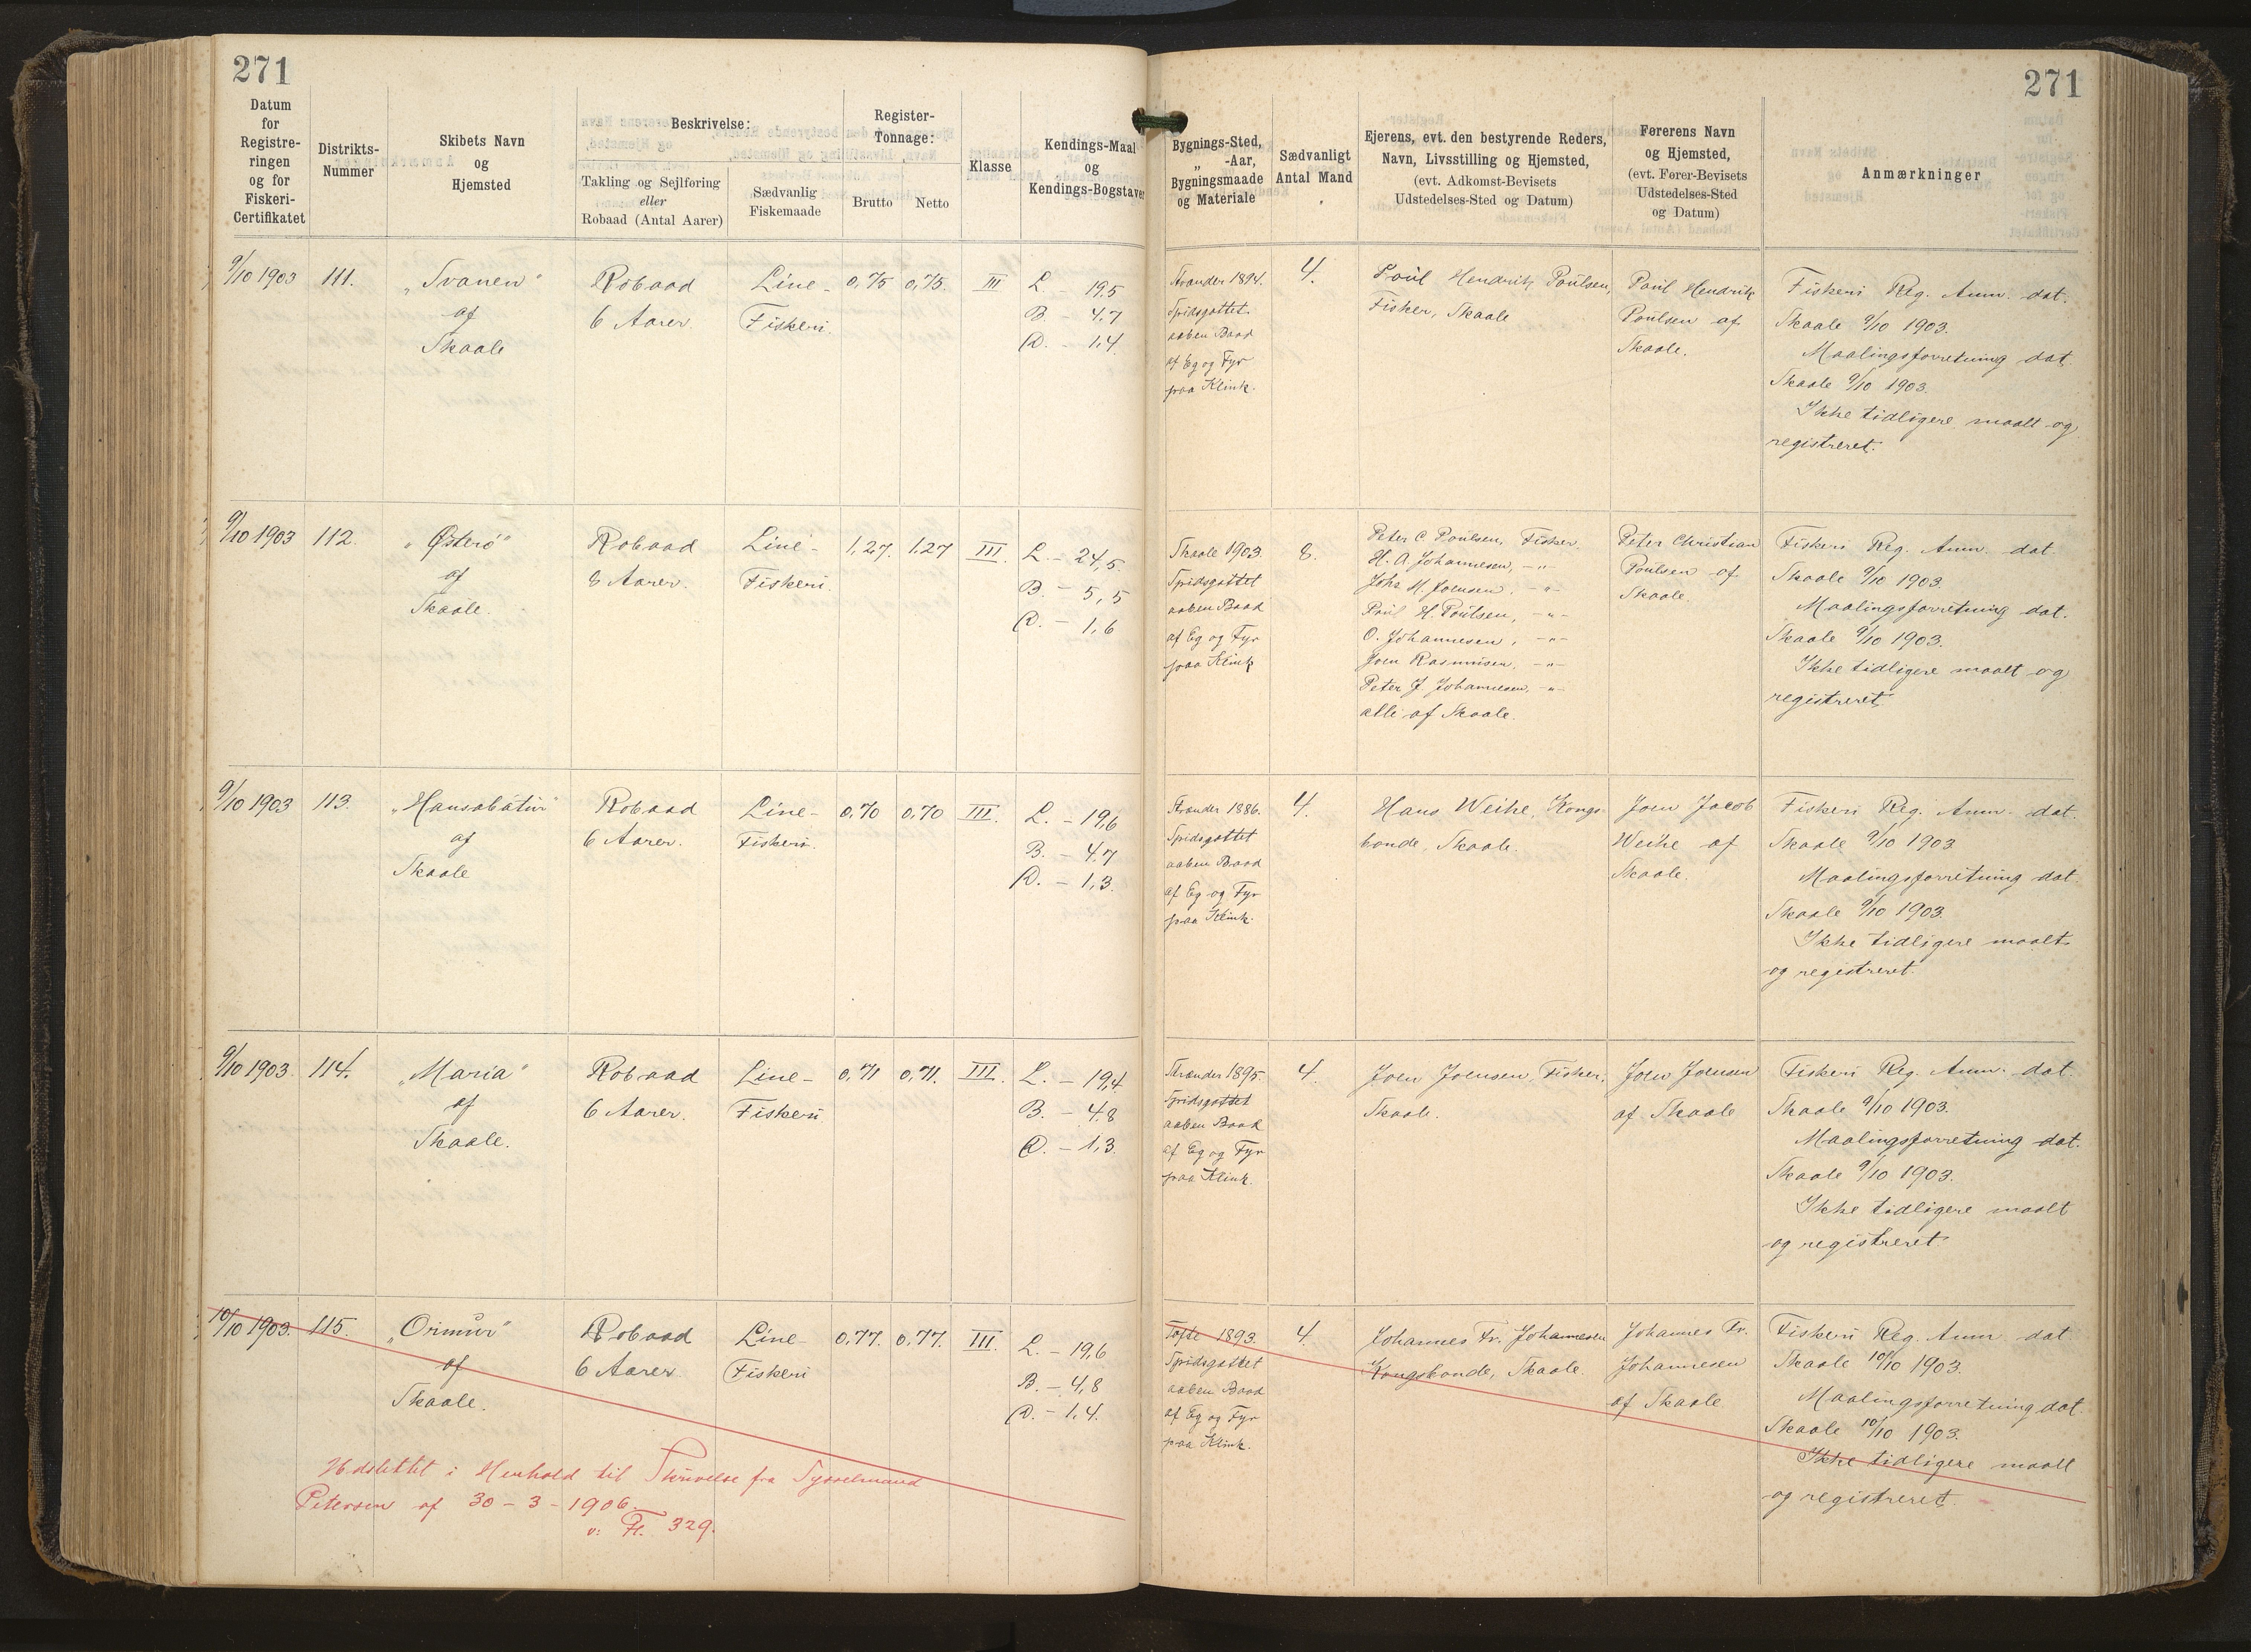 271
271
Datum
for
Registre-
ringen
og for
Fiskeri-
Certifikatet
Distrikts-
Nummer
Skibets Navn
og
Hjemsted
Beskrivelse:
Takling og Sejlføring
eller
Robaad (Antal Aarer)
Sædvanlig
Fiskemaade
Register-
Tonnage:
Brutto
Netto
Klasse
Kendings-Maal
og
Kendings-Bogstaver
Bygnings-Sted,
„ -Aar,
Bygningsmaade
og Materiale
Sædvanligt
Antal Mand
Ejerens, evt. den bestyrende Reders,
Navn, Livsstilling og Hjemsted,
(evt. Adkomst-Bevisets
Udstedelses-Sted og Datum)
Førerens Navn
og Hjemsted,
(evt. Fører-Bevisets
Udstedelses-Sted
og Datum)
Anmærkninger
9/10 1903
111.
„Svanen"
af
Skaale
Robaad
6 Aarer.
Line-
Fiskeri.
0,75
0,75.
III
L. - 19,5
B. - 4,7
D. - 1,4
Strander 1894.
Spidsgattet
aaben Baad
af Eg og Fyr
paa Klink.
4.
Poul Hendrik Poulsen,
Fisker, Skaale
Poul Hendrik
Poulsen af
Skaale.
Fiskeri Reg. Anm. dat.
Skaale 9/10 1903.
Maalingsforretning dat.
Skaale 9/10 1903.
Ikke tidligere maalt og
registreret.
9/10 1903
112.
„Østerö"
af
Skaale.
Robaad
8 Aarer.
Line-
Fiskeri.
1,27.
1,27
III.
L. - 24,5
B. - 5,5
D. - 1,6
Skaale 1903.
Spidsgattet
aaben Baad
af Eg og Fyr
paa Klink
8.
Peter C Poulsen, Fisker.
H. A. Johannesen, -"-
Johs M. Joensen, -"-
Poul H. Poulsen, -"-
O. Johannesen, -"-
Joen Rasmusen, -"-
Peter J. Johannesen, -"-
alle af Skaale.
Peter Christian
Poulsen af
Skaale.
Fiskeri Reg. Anm. dat.
Skaale 9/10 1903.
Maalingsforretning dat.
Skaale 9/10 1903.
Ikke tidligere maalt og
registreret
9/10 1903
113.
„Hansabátur"
af
Skaale
Robaad
6 Aarer.
Line-
Fiskeri.
0,70
0,70
III.
L. - 19,6
B. - 4,7
D. - 1,3.
Strander 1886.
Spidsgattet
aaben Baad
af Eg og Fyr
paa Klink.
4.
Hans Weihe, Kongs-
bonde, Skaale.
Joen Jacob
Weihe af
Skaale.
Fiskeri Reg. Anm. dat.
Skaale 9/10 1903
Maalingsforretning dat.
Skaale 9/10 1903.
Ikke tidligere maalt
og registreret.
9/10 1903.
114.
„Maria"
af
Skaale.
Robaad
6 Aarer.
Line-
Fiskeri
0,71
0,71.
III.
L. - 19,4
B. - 4,8
D. - 1,3.
Strander 1895.
Spidsgattet
aaben Baad
af Eg og Fyr
paa Klink.
4.
Joen Joensen, Fisker,
Skaale.
Joen Joensen
af Skaale
Fiskeri Reg. Anm. dat.
Skaale 9/10 1903.
Maalingsforretning dat.
Skaale 9/10 1903.
Ikke tidligere maalt
og registreret
10/10 1903.
115.
„Ormur"
af
Skaale.
Robaad
6 Aarer
Line-
Fiskeri
0,77.
0,77.
III.
L. - 19,6
B. - 4,8
D. - 1,4.
Tofte 1893.
Spidsgattet
aaben Baad
af Eg og Fyr
paa Klink.
4.
Johannes Fr. Johannesen
Kongsbonde, Skaale.
Johannes Fr.
Johannesen
af Skaale
Fiskeri Reg. Anm dat.
Skaale 10/10 1903.
Maalingsforretning dat.
Skaale 10/10 1903.
Ikke tidligere maalt
og registreret.
Udslettet i Henhold til Skrivelse fra Sysselmand
Petersen af 30-3-1906.
329.